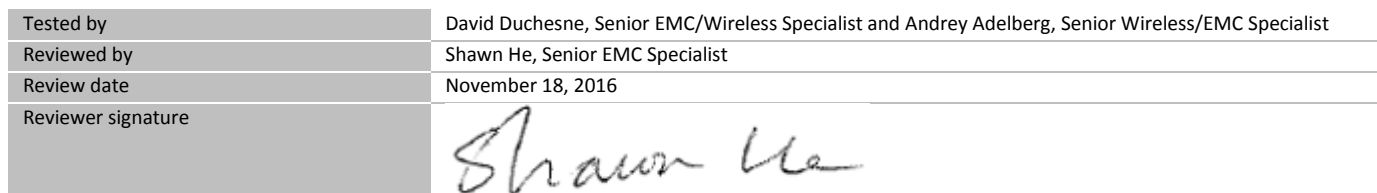 Tested by David Duchesne, Senior EMC/Wireless Specialist and Andrey Adelberg, Senior Wireless/EMC Specialist
Reviewed by Shawn He, Senior EMC Specialist
Review date November 18, 2016
Reviewer signature Shawn He